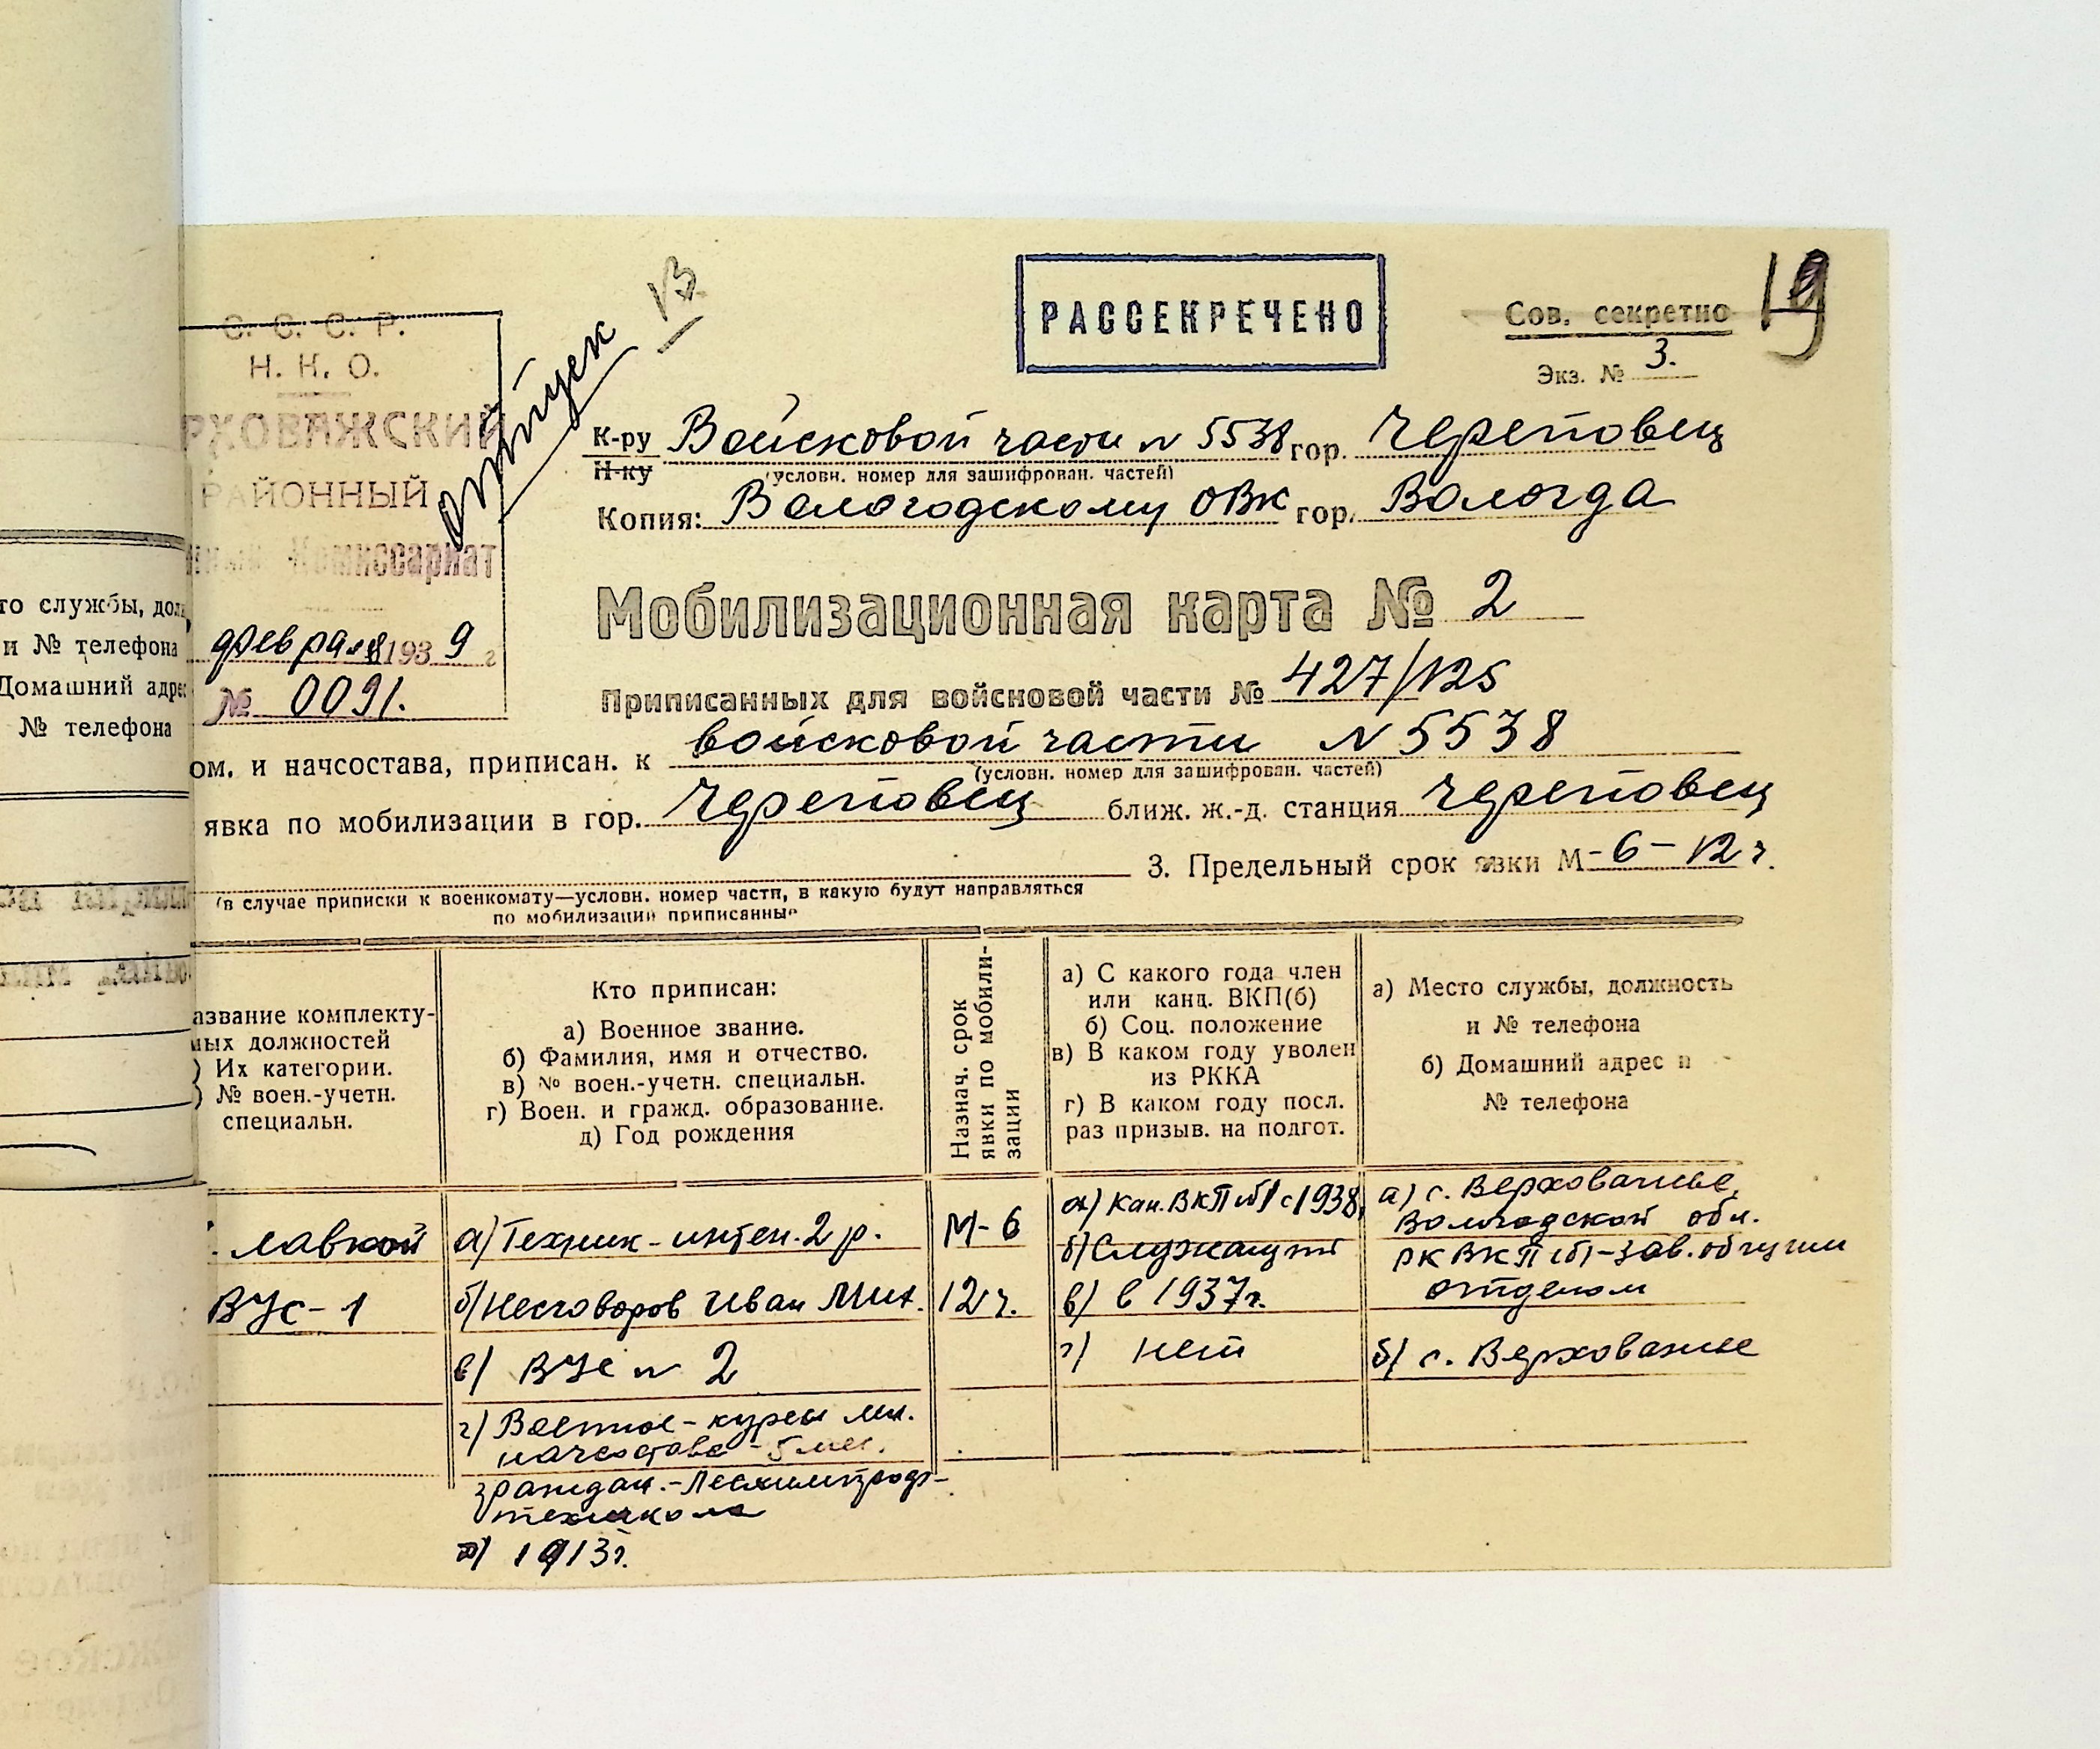 РАССЕКРЕЧЕНО
Сов. секретно
19
Экз. № 3.
С. С. С. Р.
Н. К. О.
РХОВАЖСКИЙ
РАЙОННЫЙ
Комиссариат
февраля 1939 г
№ 0091.
К-ру Войсковой части № 5538 гор. Череповец
Н-ку
(условн. номер для зашифрован. частей)
Копия: Вологодскому ОВК гор. Вологда
Мобилизационная карта № 2
Приписанных для войсковой части № 427/125
ом. и начсостава, приписан. к войсковой части № 5538
(условн. номер для зашифрован. частей)
явка по мобилизации в гор. Череповец ближ. ж.-д. станция Череповец
3. Предельный срок явки М-6-12 ч.
(в случае приписки к военкомату—условн. номер части, в какую будут направляться
по мобилизации приписанные
азвание комплекту-
мых должностей
) Их категории.
) № воен.-учетн.
специальн.
Кто приписан:
а) Военное звание.
б) Фамилия, имя и отчество.
в) № воен.-учетн. специальн.
г) Воен. и гражд. образование.
д) Год рождения
Назнач. срок
явки по мобили-
зации
а) С какого года член
или канд. ВКП(б)
б) Соц. положение
в) В каком году уволен
из РККА
г) В каком году посл.
раз призыв. на подгот.
а) Место службы, должность
и № телефона
б) Домашний адрес и
№ телефона
. лавкой
ВУС-1
а) Техник-интен. 2 р.
б) Несговоров Иван Мих.
в) ВУС № 2
г) Военное - курсы мл.
начсостава - 5 мес.
граждан.-
д) 1913 г.
М-6
12 ч.
а) Кан. ВКП(б) с 1938
б) Служащий
в) в 1937 г.
г) нет
а) с. Верховажье,
Вологодской обл.
РК ВКП(б)-зав. общим
отделом
б) с. Верховажье
то службы, дол
и № телефона
Домашний адрес
№ телефона